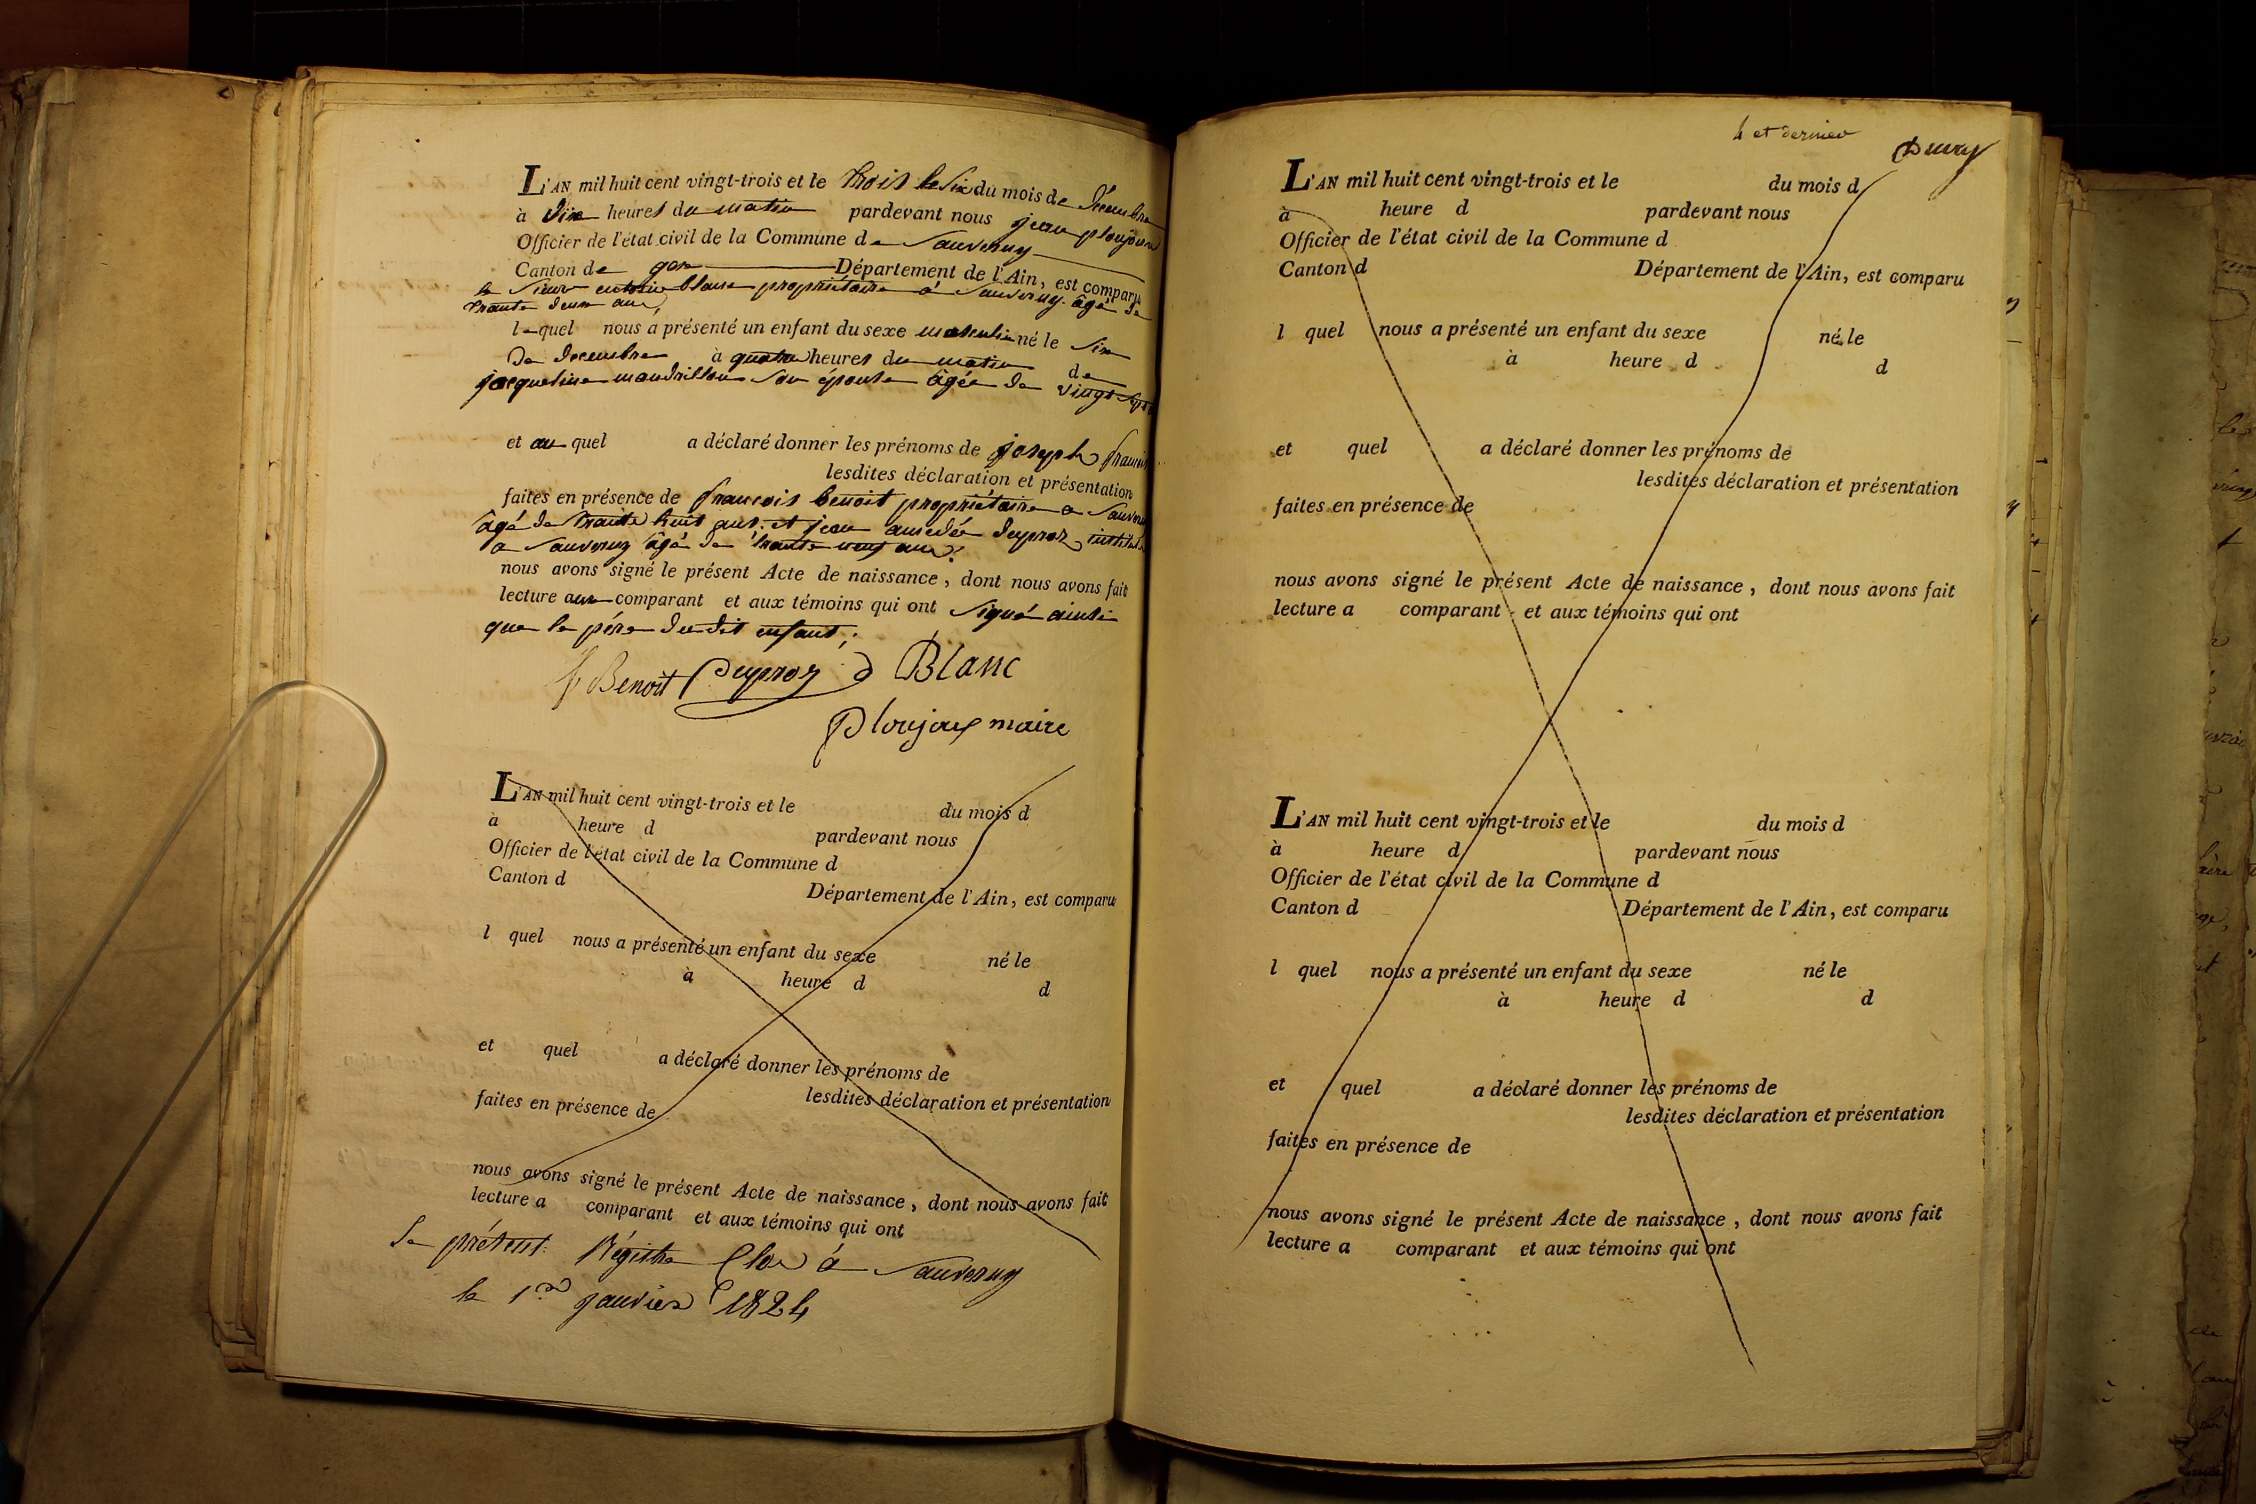 L'AN mil huit cent vingt-trois et le trois le six du mois de décembre
à dix heures du matin pardevant nous jean ploujoux
Officier de l'état civil de la Commune de Sauverny
Canton de gex Département de l'Ain, est comparu
le sieur blanc propriétaire à Sauverny âgé de
trante deux ans,
lequel nous a présenté un enfant du sexe masculin né le six
De decembre à quatre heures du matin de
jacqueline mandrillon son épouse âgée de vingt sept
et au quel a déclaré donner les prénoms de joseph françois
lesdites déclaration et présentation
faites en présence de francois benoit propriétaire a Sauverny
âgé de trante huit ans; et jean amedée Deyproz
a Sauverny âgé de trante neuf ans;
nous avons signé le présent Acte de naissance, dont nous avons fait
lecture aux comparant et aux témoins qui ont signé ainsi
que le père du dit enfant;
f Benoit Deyproz Blanc
Ploujoux maire
L'AN mil huit cent vingt-trois et le du mois d
à heure d pardevant nous
Officier de l'état civil de la Commune d
Canton d Département de l'Ain, est comparu
l quel nous a présenté un enfant du sexe né le
à heure d d
et quel a déclaré donner les prénoms de
lesdites déclaration et présentation
faites en présence de
nous avons signé le présent Acte de naissance, dont nous avons fait
lecture a comparant et aux témoins qui ont
Le présent Régistre Clos à Sauverny
le 1er janvier 1824
4 et dernier
L'AN mil huit cent vingt-trois et le du mois d
à heure d pardevant nous
Officier de l'état civil de la Commune d
Canton d Département de l'Ain, est comparu
l quel nous a présenté un enfant du sexe né le
à heure d d
et quel a déclaré donner les prénoms de
lesdites déclaration et présentation
faites en présence de
nous avons signé le présent Acte de naissance, dont nous avons fait
lecture a comparant et aux témoins qui ont
L'AN mil huit cent vingt-trois et le du mois d
à heure d pardevant nous
Officier de l'état civil de la Commune d
Canton d Département de l'Ain, est comparu
l quel nous a présenté un enfant du sexe né le
à heure d d
et quel a déclaré donner les prénoms de
lesdites déclaration et présentation
faites en présence de
nous avons signé le présent Acte de naissance, dont nous avons fait
lecture a comparant et aux témoins qui ont